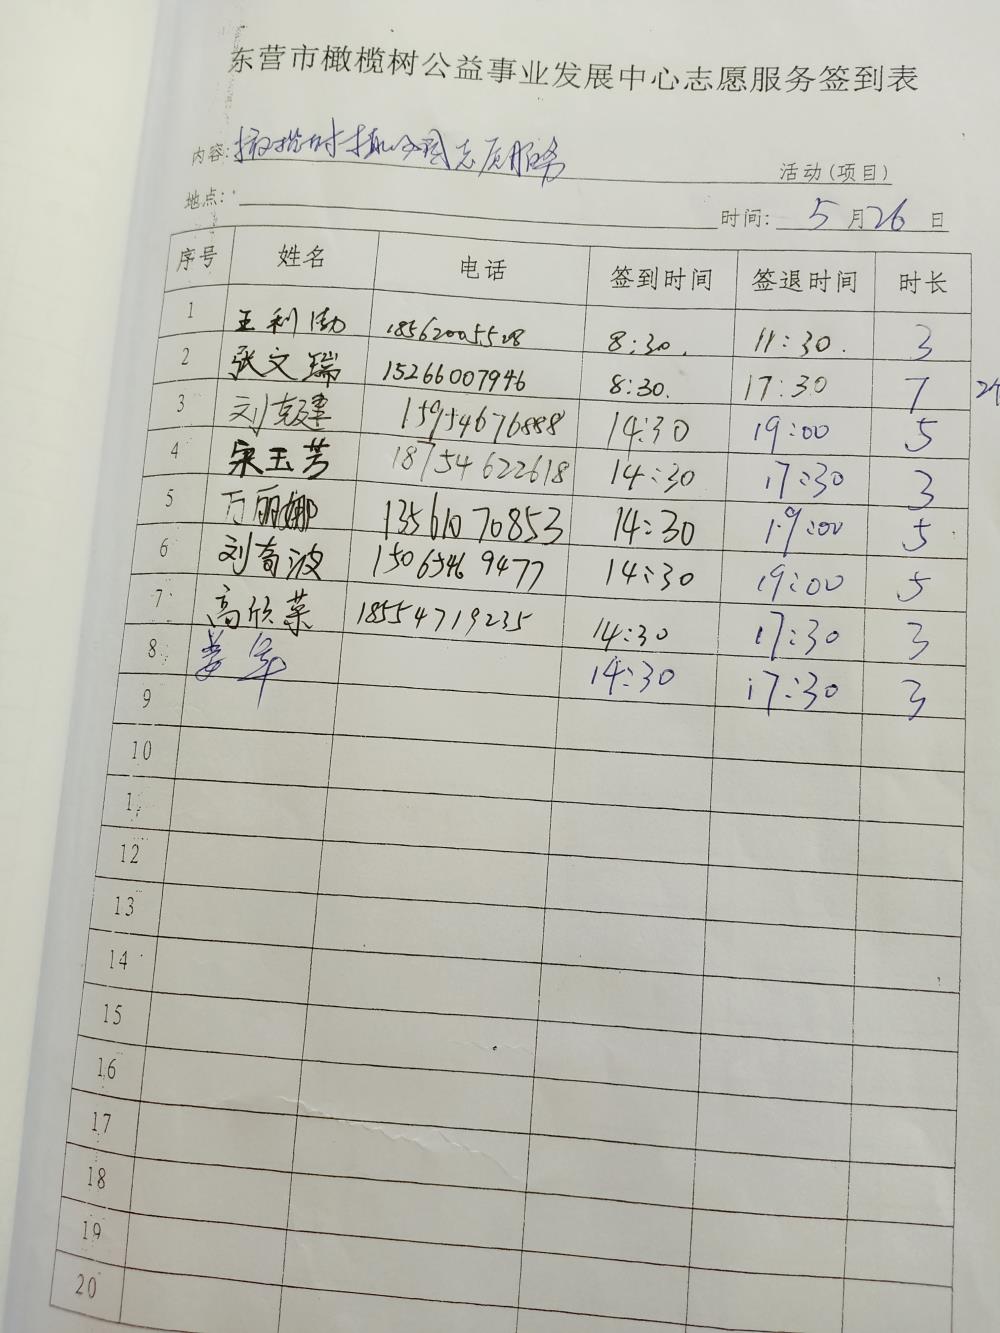 东营市橄榄树公益事业发展中心志愿服务签到表
内容: 橄榄树 志愿服务 活动(项目)
地点:
时间: 5月26日
序号 姓名 电话 签到时间 签退时间 时长
1 王利勃 18562005528 8:30. 11:30. 3
2 张文瑞 15266007946 8:30. 17:30 7
3 刘克建 15954676888 14:30 19:00 5
4 宋玉芳 18754622618 14:30 17:30 3
5 万丽娜 13561070853 14:30 19:00 5
6 刘奇波 15065469477 14:30 19:00 5
7 高欣荣 18554719235 14:30 17:30 3
8 14:30 17:30 3
9
10
1
12
13
14
15
16
17
18
19
20